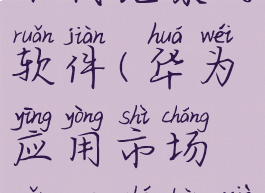 ruǎn jiàn huá wéi
软件(华为
yīng yòng shì chǎng
应用市场